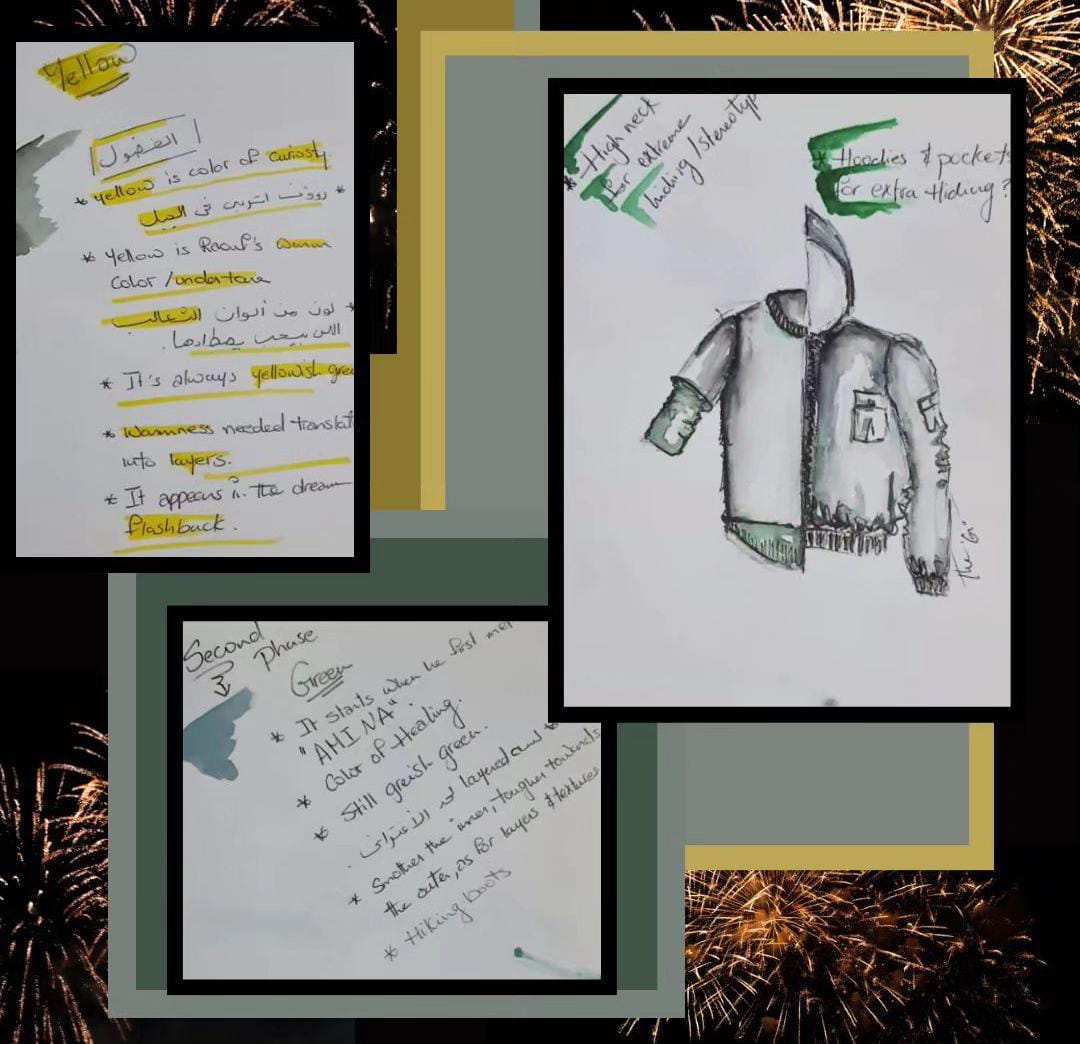 Yellow
الفضول
* yellow is color of curiosty
* رؤوف اتربى في الجبل
* Yellow is Raouf's warm
color / undertone
* لون من ألوان الثعالب
اللى بيحب يصطادها.
* It's always yellowish gree
* Warmness needed translat
into layers.
* It appears in the dream
flashback.
* High neck
for extreme
hiding / stereotyp
* Hoodies & pockets
for extra Hiding?
The "G"
Second Phase
Green
* It starts when he first met
"AMINA".
* Color of Healing.
* Still greish green.
layered and
* Smother the inner, tougher towards
the outer, as for layers & textures
* Hiking boots